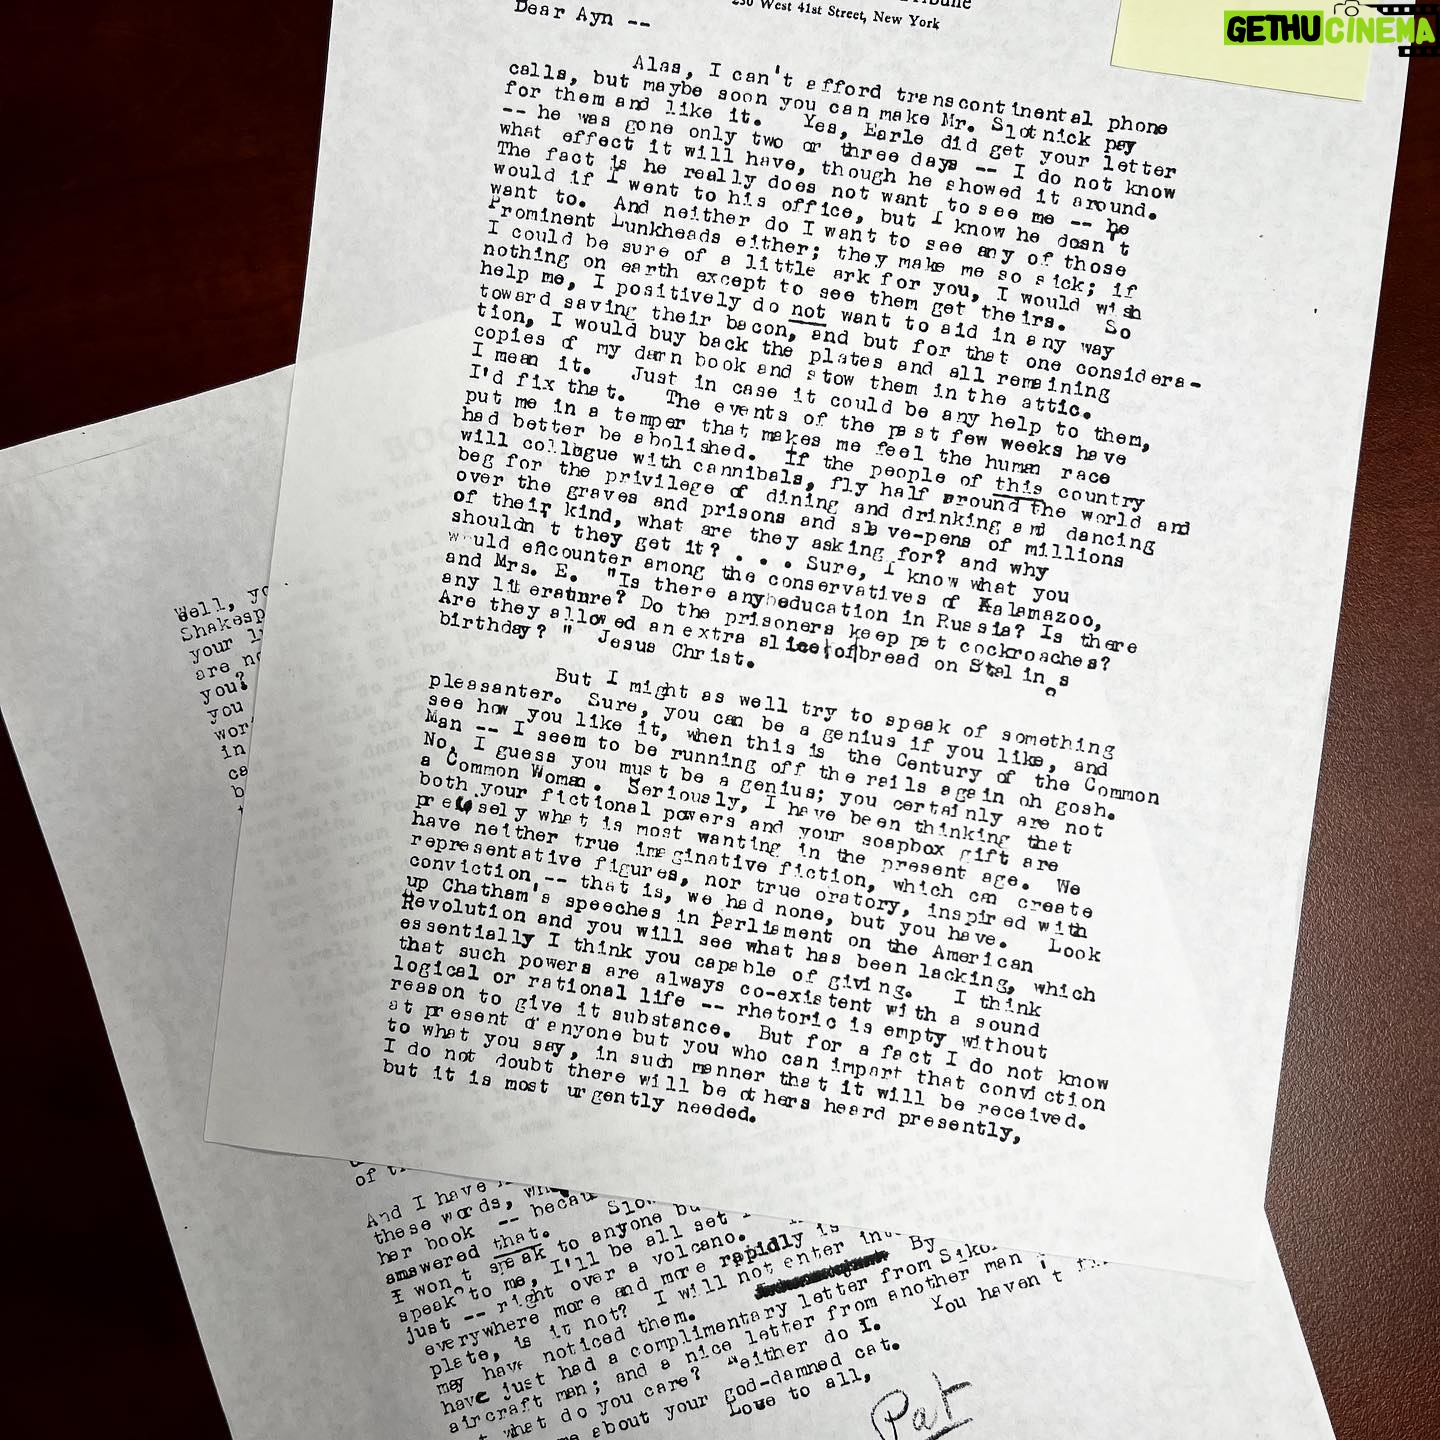 GETHUCINEMA
Tribune
230 West 41st Street, New York
Dear Ayn --
Alas, I can't afford transcontinental phone
calls, but maybe soon you can make Mr. Slotnick pay
for them and like it. Yes, Earle did get your letter
-- he was gone only two or three days -- I do not know
what effect it will have, though he showed it around.
The fact is he really does not want to see me -- he
would if I went to his office, but I know he dosn't
want to. And neither do I want to see any of those
Prominent Lunkheads either; they make me so sick; if
I could be sure of a little ark for you, I would wish
nothing on earth except to see them get theirs. So
help me, I positively do not want to aid in any way
toward saving their bacon, and but for that one considera-
tion, I would buy back the plates and all remaining
copies of my darn book and stow them in the attic.
I mean it. Just in case it could be any help to them,
I'd fix that. The events of the past few weeks have
put me in a temper that makes me feel the human race
had better be abolished. If the people of this country
will collogue with cannibals, fly half around the world and
beg for the privilege of dining and drinking and dancing
over the graves and prisons and slave-pens of millions
of their kind, what are they asking for? and why
shouldn't they get it? . . . Sure, I know what you
would encounter among the conservatives of Kalamazoo,
and Mrs. E. "Is there any education in Russia? Is there
any literature? Do the prisoners keep pet cockroaches?
Are they allowed an extra slice of bread on Stalin's
birthday?" Jesus Christ.
But I might as well try to speak of something
pleasanter. Sure, you can be a genius if you like, and
see how you like it, when this is the Century of the Common
Man -- I seem to be running off the rails again oh gosh.
No, I guess you must be a genius; you certainly are not
a Common Woman. Seriously, I have been thinking that
both your fictional powers and your soapbox gift are
precisely what is most wanting in the present age. We
have neither true imaginative fiction, which can create
representative figures, nor true oratory, inspired with
conviction -- that is, we had none, but you have. Look
up Chatham's speeches in Parliament on the American
Revolution and you will see what has been lacking, which
essentially I think you capable of giving. I think
that such powers are always co-existent with a sound
logical or rational life -- rhetoric is empty without
reason to give it substance. But for a fact I do not know
at present of anyone but you who can impart that conviction
to what you say, in such manner that it will be received.
I do not doubt there will be others heard presently,
but it is most urgently needed.
Well, yo
Shakesp
your l
are no
you?
you
wor
in
ca
b
of t
And I have
these words, wh
her book -- becau
answered that. Slow
I won't speak to anyone bu
speak to me, I'll be all set
just -- right over a volcano.
everywhere more and more rapidly is
plate, is it not? I will not enter in
may have noticed them. By
have just had a complimentary letter from Siko
aircraft man; and a nice letter from another man
what do you care? Neither do I. You haven't
me about your god-damned cat.
Love to all,
Pat